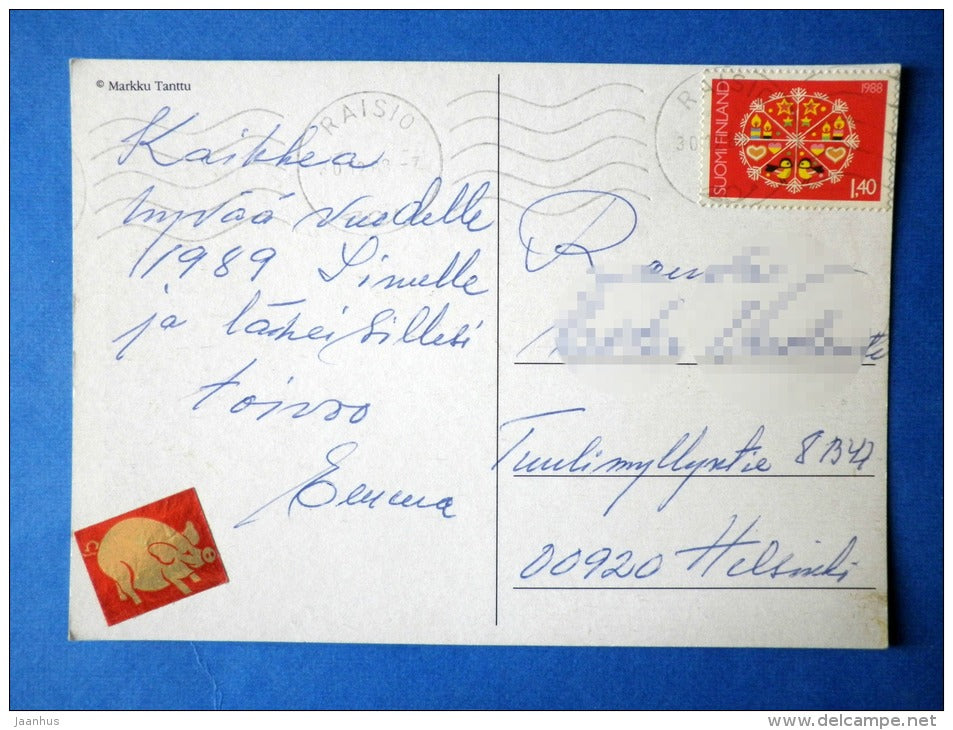 © Markku Tanttu
RAISIO
Kaikkea
hyvää vuodelle
1989 Sinulle
ja läheisillesi
toivoo
Emma
RAISIO
30
1988
SUOMI FINLAND
1,40
R
Tuulimyllyntie 8 B47
00920 Helsinki
jaanhus
www.delcampe.net